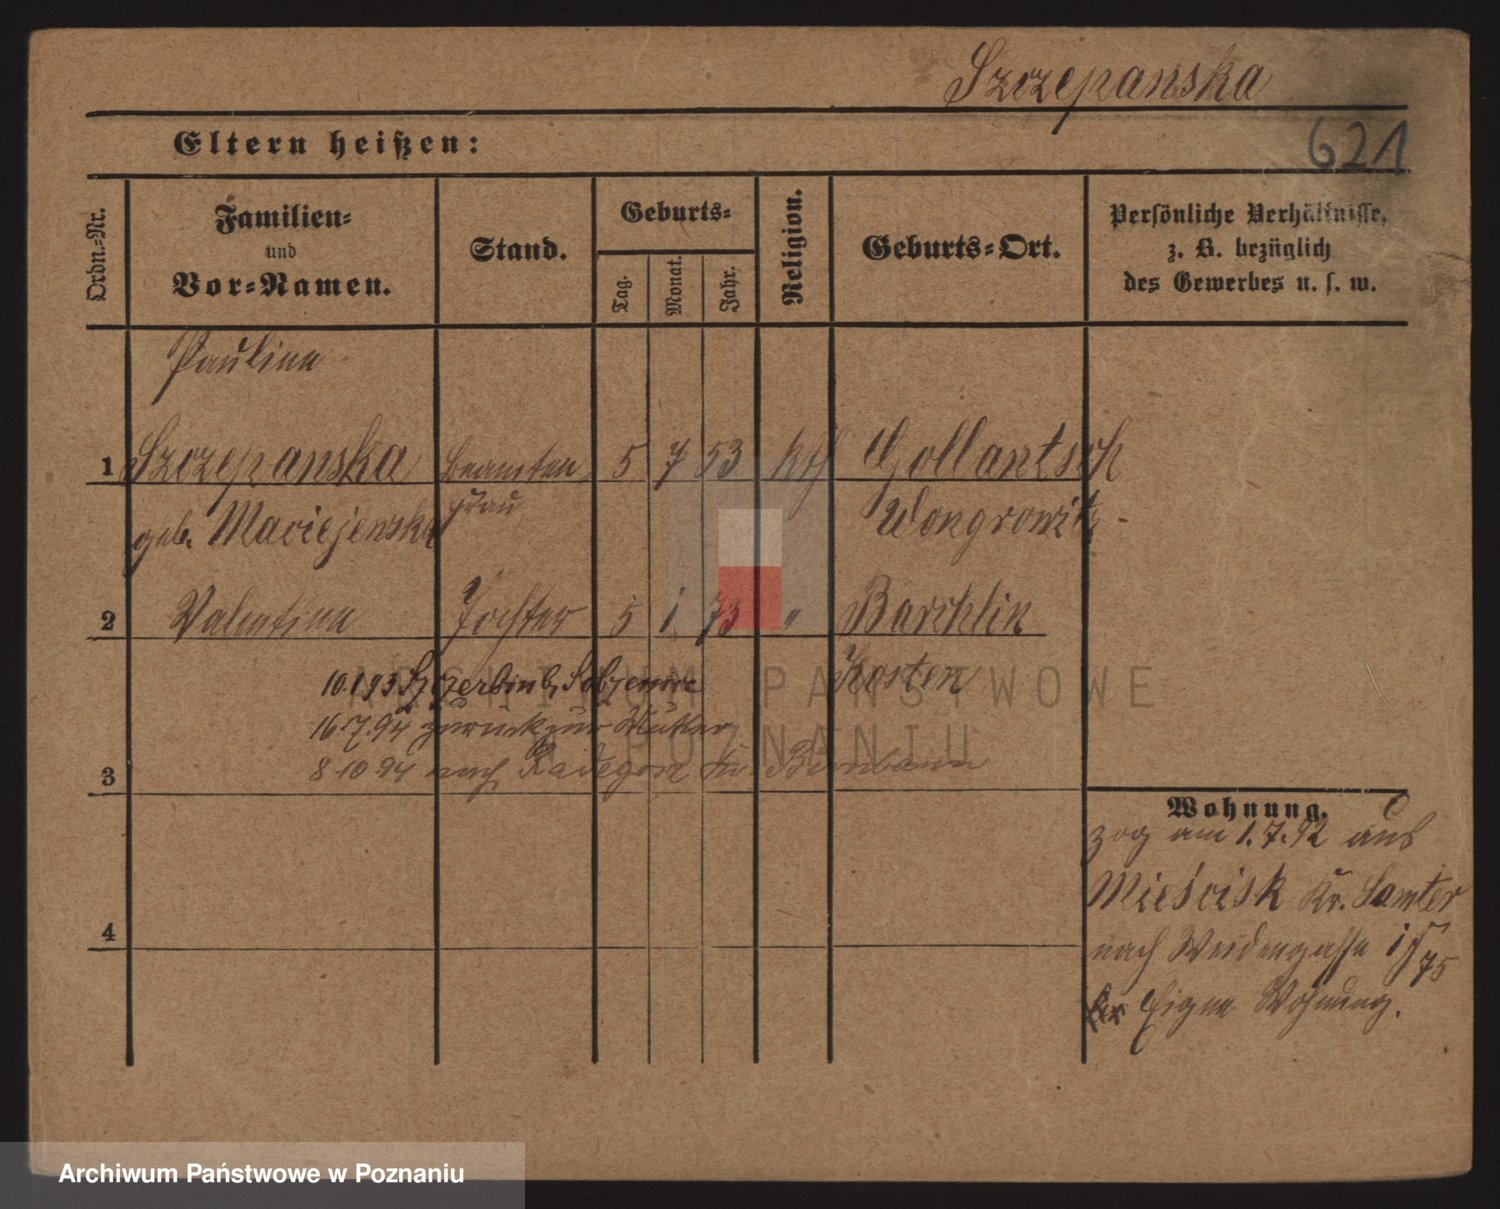 Szczepanska
621
Eltern heißen:
Ordn.=Nr.
Familien=
und
Vor=Namen.
Stand.
Geburts=
Tag.
Monat.
Jahr.
Religion.
Geburts=Ort.
Persönliche Verhältnisse,
z. B. bezüglich
des Gewerbes u. s. w.
Pauline
1 Szczepanska Beamten 5 7 53 kth Gollantsch
geb. Maciejewska frau Wongrowitz
2 Valentine Tochter 5 1 73 " Barchlin
Kosten
10.1.93
16.7.94 zurück zur Mutter
3
8.10.94 nach Radegosz Kr. Birnbaum
4
Wohnung.
zog am 1.7.92 aus
Mieścisk Kr. Samter
nach Weidengasse
75
Eigne Wohnung.
ARCHIWUM PAŃSTWOWE
W POZNANIU
Archiwum Państwowe w Poznaniu